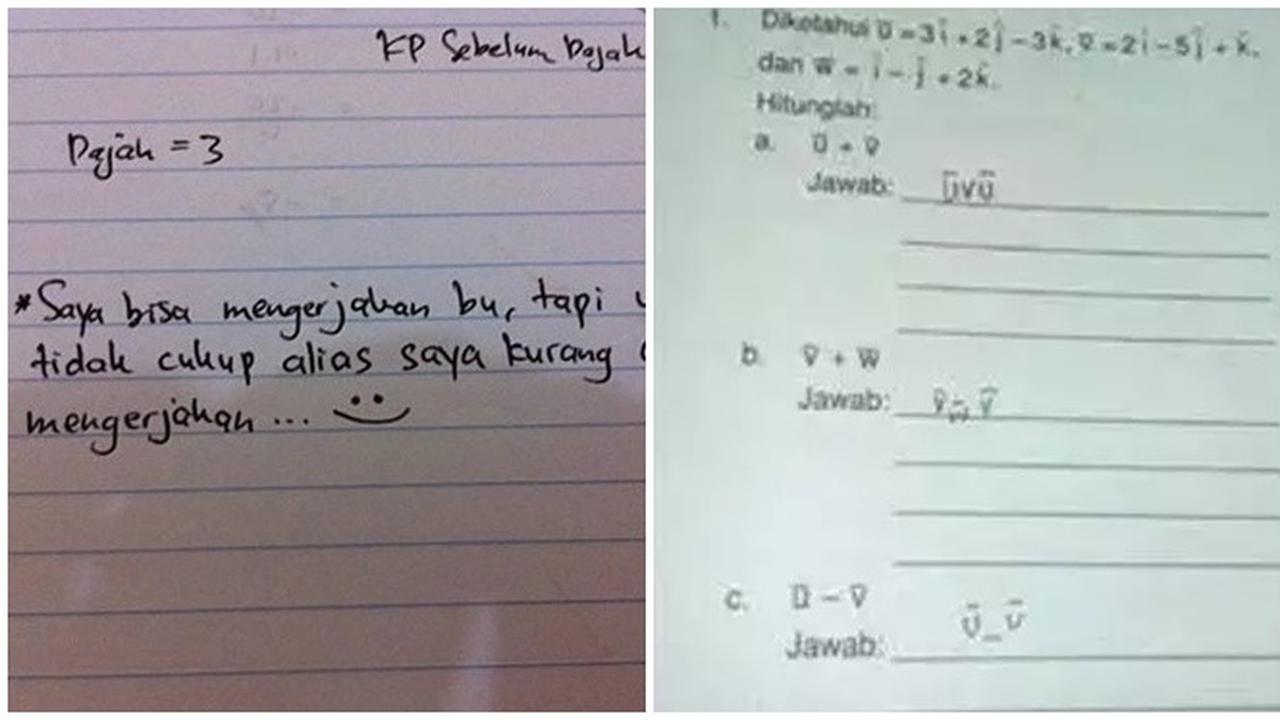 KP Sebelum Pajak
Pajak = 3
*Saya bisa mengerjakan bu, tapi
tidak cukup alias saya kurang
mengerjakan ...
1. Diketahui ū = 3i + 2j - 3k, v̄ = 2i - 5j + k,
dan w̄ = i - j + 2k.
Hitunglah:
a. ū + v̄
Jawab: ŪVŪ
b. v̄ + w̄
Jawab:
c. ū - v̄
Jawab: Ū_Ū